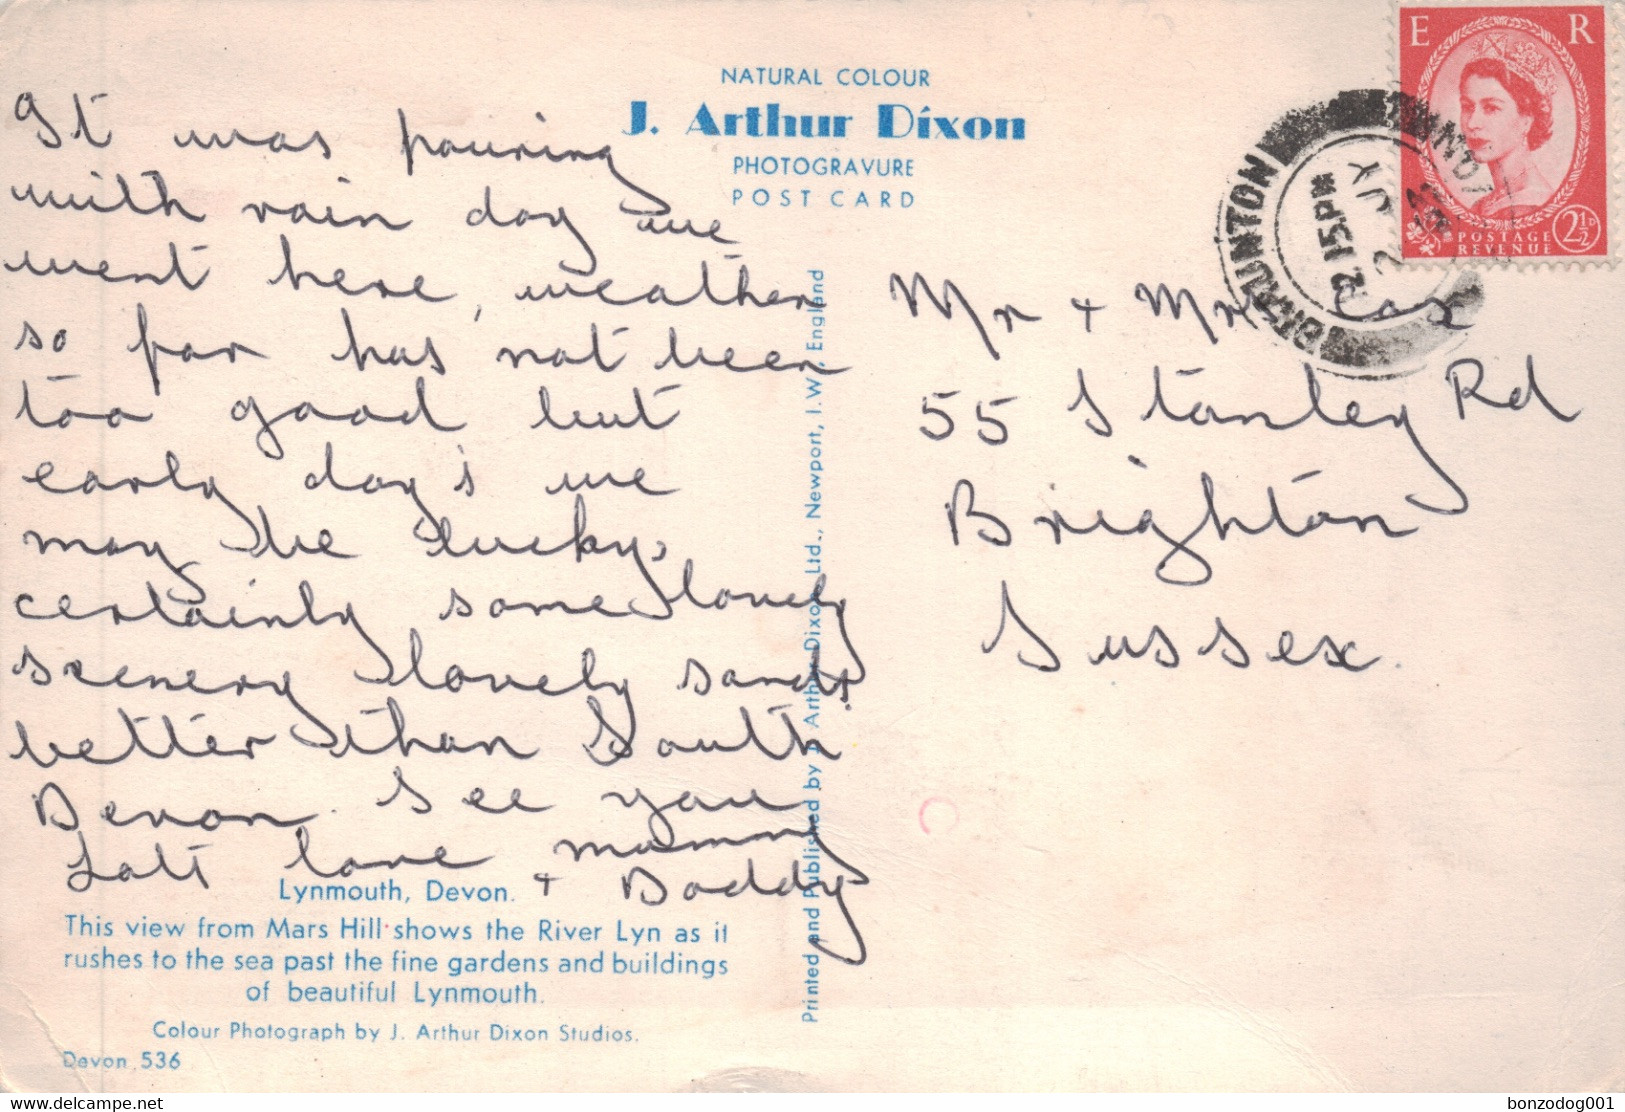 It was pouring
with rain day we
went here, weather
so far has not been
too good but
early day's we
may be lucky,
certainly some lovely
scenery lovely sands,
better than South
Devon. See you
Lots love mummy
+ Daddy
NATURAL COLOUR
J. Arthur Dixon
PHOTOGRAVURE
POST CARD
E R
POSTAGE
REVENUE
2½D
BRAUNTON
12 15PM
2 JY
Mr + Mrs Cox
55 Stanley Rd
Brighton
Sussex.
Printed and Published by J. Arthur Dixon Ltd., Newport, I.W., England
Lynmouth, Devon.
This view from Mars Hill shows the River Lyn as it
rushes to the sea past the fine gardens and buildings
of beautiful Lynmouth.
Colour Photograph by J. Arthur Dixon Studios.
Devon 536
www.delcampe.net
bonzodog001